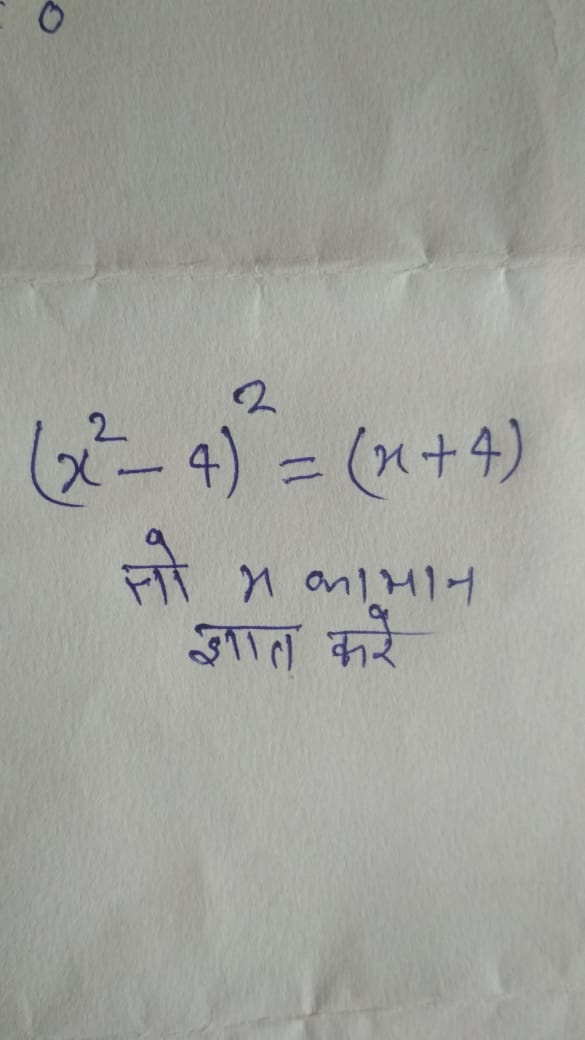 0
(x²- 4)² = (x+4)
तो x का मान
ज्ञात करे